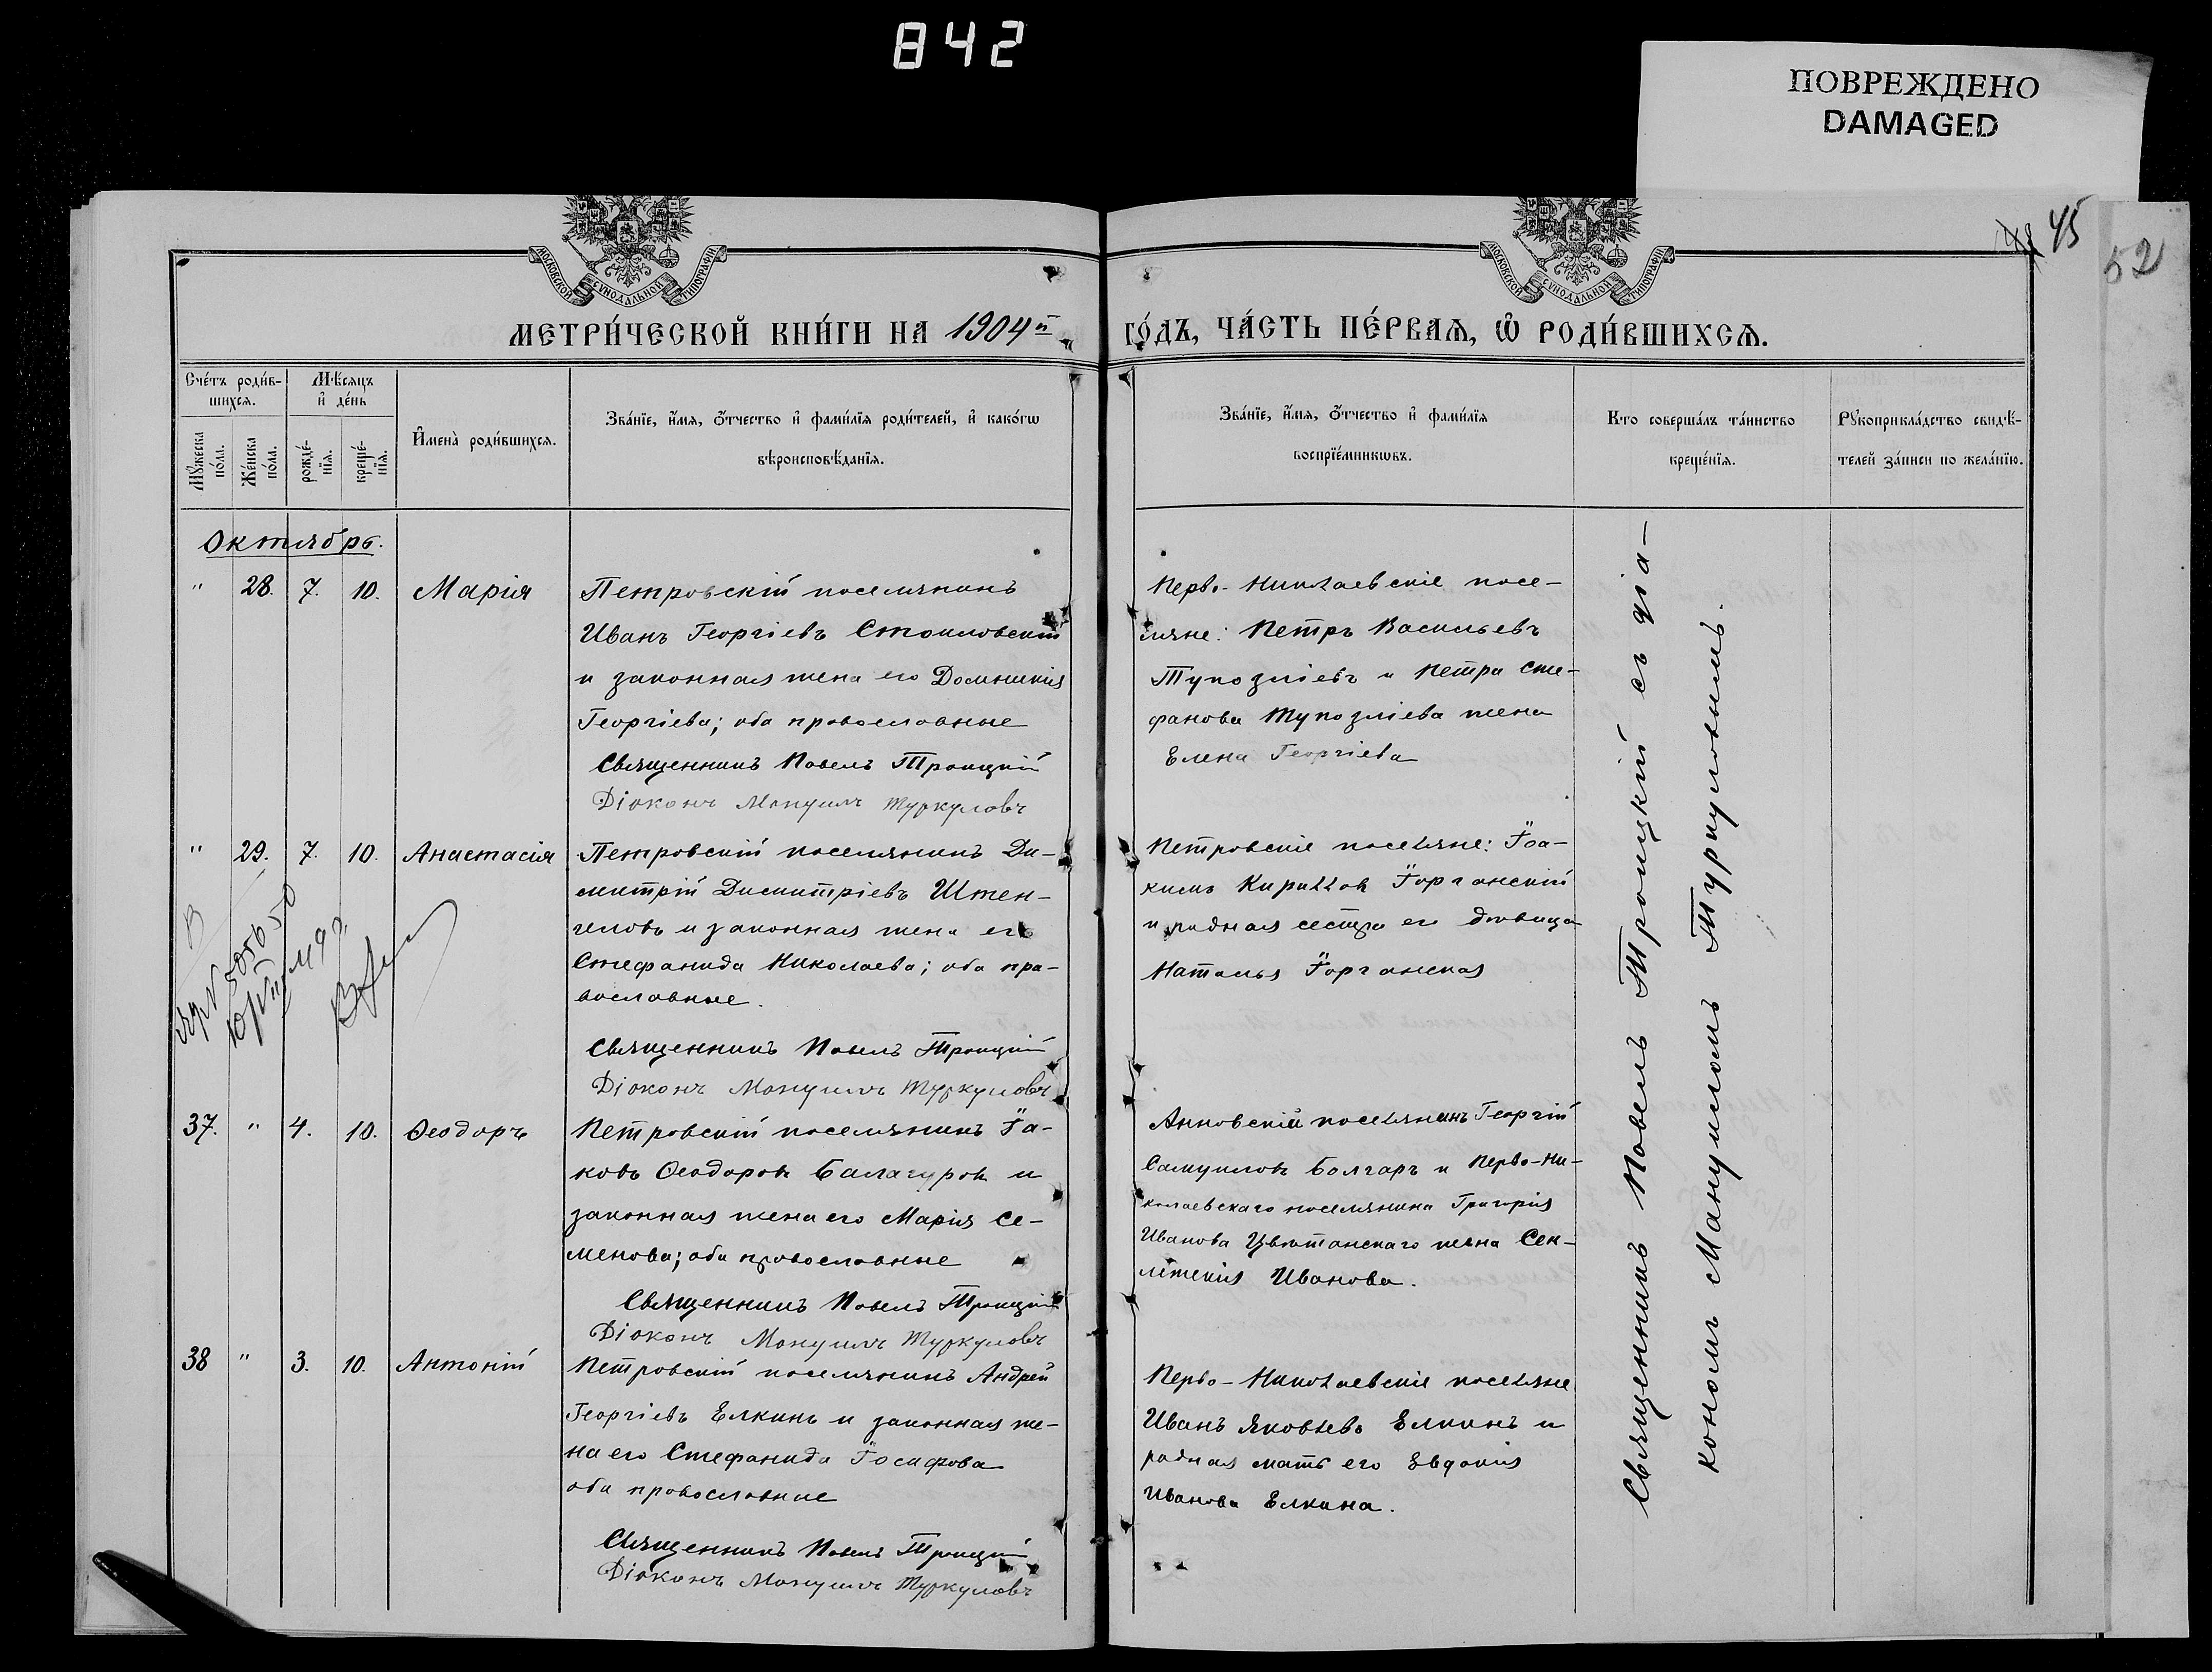 842
ПОВРЕЖДЕНО
DAMAGED
45
52
МОСКОВСКОЙ СѴНОДАЛЬНОЙ ТИПОГРАФІИ
МОСКОВСКОЙ СѴНОДАЛЬНОЙ ТИПОГРАФІИ
МЕТРИ́ЧЕСКОЙ КНИ́ГИ НА 1904й ГО́ДЪ, ЧА́СТЬ ПЕ́РВАѦ, Ѡ РОДИ́ВШИХСѦ.
Сче́тъ роди́вшихсѧ.
Мꙋ́жеска по́ла.
Же́нска по́ла.
Мѣ́сѧцъ и де́нь
рожде́нїѧ.
креще́нїѧ.
Имена̀ роди́вшихсѧ.
Зва́нїе, и́мѧ, ѻ́тчество и фами́лїѧ роди́телей, и како́гѡ
вѣроисповѣ́данїѧ.
Зва́нїе, и́мѧ, ѻ́тчество и фами́лїѧ
воспрїе́мникѡвъ.
Кто соверша́лъ та́инство
креще́нїѧ.
Рꙋкоприкла́дство свидѣ́-
телей за́писи по жела́нїю.
Октябрь.
" 28. 7. 10. Марія
Петровскій поселянинъ
Иванъ Георгіевъ Стоиловскій
и законная жена его Домникія
Георгіева; оба православные
Священникъ Павелъ Троицкій
Діаконъ Мануилъ Туркуловъ
Перво-Николаевскіе посе-
ляне: Петръ Васильевъ
Тукозліевъ и Петра Сте-
фанова Тукозліева жена
Елена Георгіева
" 29. 7. 10. Анастасія
Петровскій поселянинъ Ди-
митрій Димитріевъ Штен-
геловъ и законная жена его
Стефанида Николаева; оба пра-
вославные.
Священникъ Павелъ Троицкій
Діаконъ Мануилъ Туркуловъ
Петровскіе поселяне: Іоа-
кимъ Кириллов Іорганскій
и родная сестра его девица
Наталья Іорганская
37. " 4. 10. Ѳеодоръ
Петровскій поселянинъ Іа-
ковъ Ѳеодоровъ Балагуровъ и
законная жена его Марія Се-
менова; оба православные
Священникъ Павелъ Троицкій
Діаконъ Мануилъ Туркуловъ
Анновскій поселянинъ Георгій
Самуиловъ Болгаръ и Перво-Ни-
колаевскаго поселянина Григорія
Иванова Цвѣтанскаго жена Сек-
летикія Иванова.
38 " 3. 10. Антоній
Петровскій поселянинъ Андрей
Георгіевъ Елкинъ и законная же-
на его Стефанида Іосифова
оба православные
Священникъ Павелъ Троицкій
Діаконъ Мануилъ Туркуловъ
Перво-Николаевскіе поселяне
Иванъ Яковлевъ Елкинъ и
родная мать его Евдокія
Иванова Елкина.
Священникъ Павелъ Троицкій съ діа-
кономъ Мануиломъ Туркуловымъ.